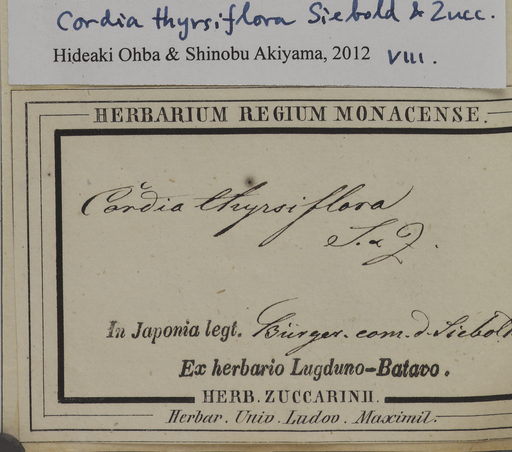 Cordia thyrsiflora Siebold & Zucc.
Hideaki Ohba & Shinobu Akiyama, 2012 VIII.
HERBARIUM REGIUM MONACENSE.
Cordia thyrsiflora
S. & Z.
In Japonia legt. Bürger. com. d. Siebold
Ex herbario Lugduno-Batavo.
HERB. ZUCCARINII.
Herbar. Univ. Ludov. Maximil.